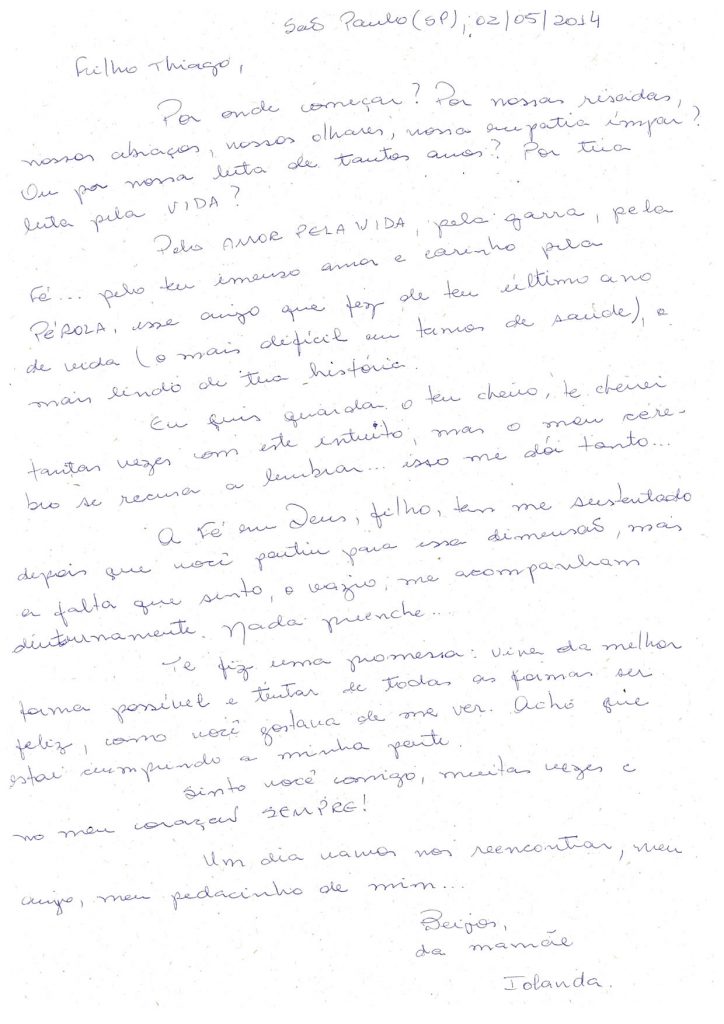 São Paulo (SP), 02/05/2014
Filho Thiago,
Por onde começar? Por nossas risadas,
nossos abraços, nossos olhares, nossa empatia ímpar?
Ou por nossa luta de tantos anos? Por tua
luta pela VIDA?
Pelo AMOR PELA VIDA, pela garra, pela
Fé... pelo teu imenso amor e carinho pela
PÉROLA, esse anjo que fez de teu último ano
de vida (o mais difícil em termos de saúde), o
mais lindo de tua história.
Eu quis guardar o teu cheiro, te cheirei
tantas vezes com este intuito, mas o meu cére-
bro se recusa a lembrar... isso me dói tanto...
A Fé em Deus, filho, tem me sustentado
depois que você partiu para essa dimensão, mas
a falta que sinto, o vazio, me acompanham
diuturnamente. Nada preenche...
Te fiz uma promessa: viver da melhor
forma possível e tentar de todas as formas ser
feliz, como você gostava de me ver. Acho que
estou cumprindo a minha parte.
Sinto você comigo, muitas vezes e
no meu coração SEMPRE!
Um dia vamos nos reencontrar, meu
anjo, meu pedacinho de mim...
Beijos,
da mamãe
Iolanda.